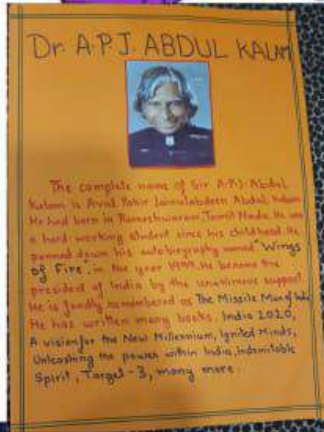 Dr. A.P.J. ABDUL KALAM
The complete name of Sir A.P.J. Abdul
Kalam is Avul Pakir Jainulabdeen Abdul Kalam
He had born in Rameshwaram, Tamil Nadu. He was
a hard-working student since his childhood. He
penned down his autobiography named "Wings
of Fire", in the year 1999. He became the
president of India by the unanimous support.
He is fondly remembered as The Missile Man of India
He has written many books. India 2020,
A vision for the New Millennium, Ignited Minds,
Unleashing the power within India, indomitable
Spirit, Target-3, many more.